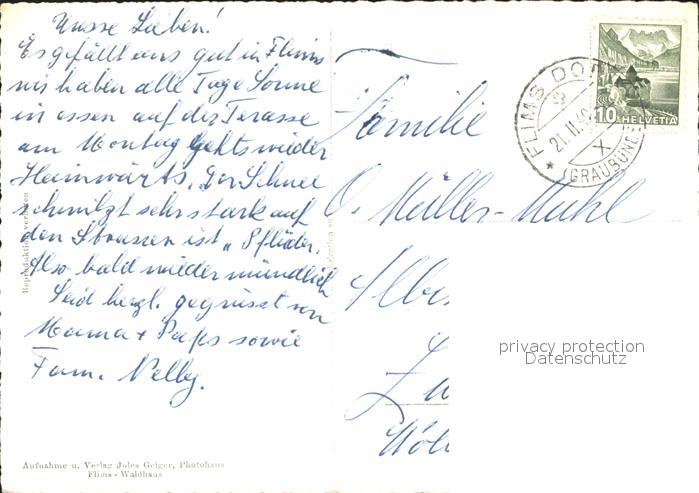 Unsre Lieben!
Es gefällt uns gut in Flims
wir haben alle Tage Sonne
wir essen auf der Terasse
am Montag gehts wieder
Heimwärts. Der Schnee
schmilzt sehr stark auf
den Strassen ist „Pflüder.
Also bald wieder mündlich
Seid herzl. gegrüsst von
Mama + Paps sowie
Fam. Nelly.
Aufnahme u. Verlag Jules Geiger, Photohaus
Flims - Waldhaus
Reproduktion verboten
Familie
O. Müller-Muhl
Albis
Zu
FLIMS DORF
21. II. 40
X
(GRAUBÜNDEN)
10 HELVETIA
privacy protection
Datenschutz